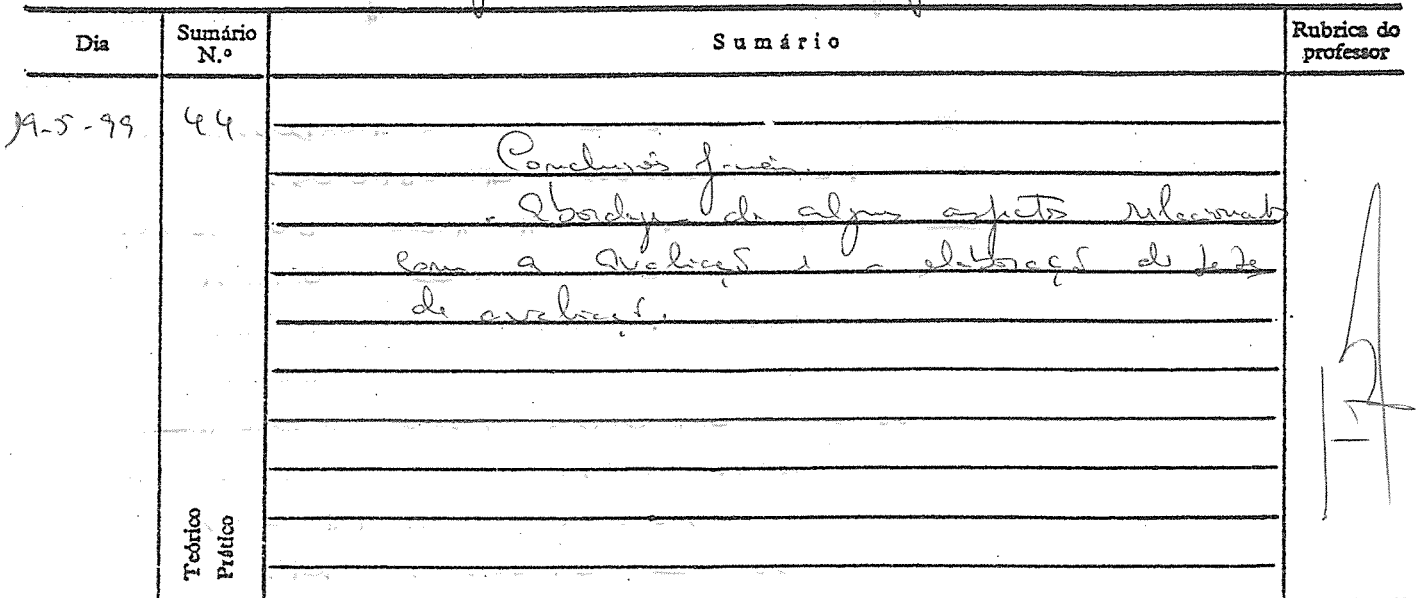 Dia
Sumário N.º
Sumário
Rubrica do professor
19-5-99
44
Conclusões finais.
- Abordagem de alguns aspectos relacionados
com a avaliação e a elaboração de testes
de avaliação.
Teórico
Prático